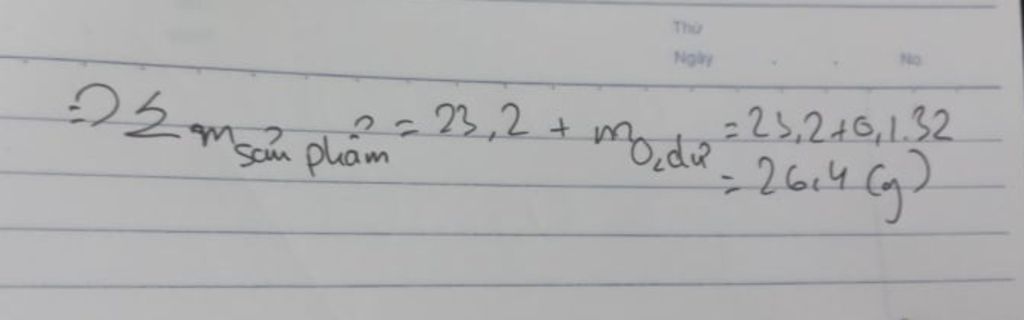 Thứ
Ngày . . No
=> Σ m sản phẩm = 23,2 + m O₂ dư = 23,2+0,1.32
= 26,4 (g)